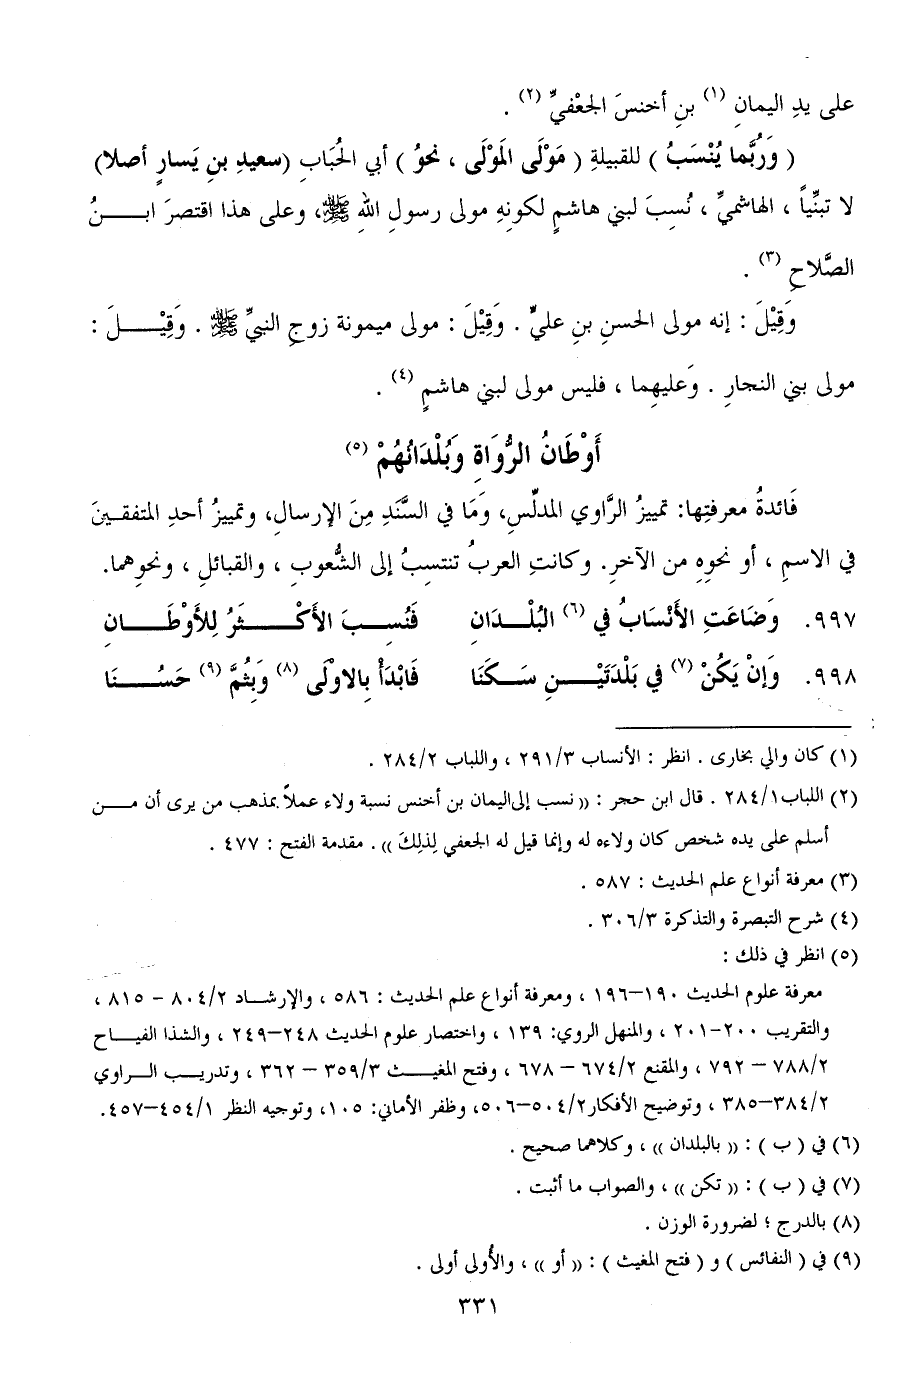 على يدِ اليمانِ (١) بنِ أخنسَ الجعْفيِّ (٢) .
( وَرُبَّما يُنْسَبُ ) للقبيلةِ ( مَوْلَى المَوْلَى ، نحوُ ) أبي الحُبَابِ (سعيدِ بنِ يَسارٍ أصلا)
لا تبنِّياً ، الهاشميِّ ، نُسبَ لبني هاشمٍ لكونِهِ مولى رسولِ اللهِ ﷺ، وعلى هذا اقتصرَ ابـــنُ
الصَّلاحِ (٣) .
وَقِيْلَ : إنه مولى الحسنِ بنِ عليٍّ . وَقِيْلَ : مولى ميمونة زوجِ النبيِّ ﷺ . وَقِيْـــلَ :
مولى بني النجارِ . وَعليهِما ، فليس مولى لبني هاشمٍ (٤) .
أَوْطَانُ الرُّوَاةِ وَبُلْدَانُهُمْ (٥)
فَائدةُ معرفتِها: تمييزُ الرَّاوي المدلِّسِ، وَمَا في السَّنَدِ مِنَ الإرسالِ، وتمييزُ أحدِ المتفقينَ
في الاسمِ ، أو نحوِهِ من الآخرِ. وكانتِ العربُ تنتسبُ إلى الشُّعوبِ ، والقبائلِ ، ونحوِهما.
٩٩٧. وَضَاعَتِ الأَنْسَابُ في (٦) البُلْـدَانِ فَنُسِـبَ الأَكْـثَـرُ لِلأَوْطَـانِ
٩٩٨. وَإنْ يَكُنْ (٧) في بَلْدَتَيْـنِ سَـكَنَا فَابْدَأْ بِالاوْلَى (٨) وَبِثُمَّ (٩) حَسُـنَا
(١) كان والي بخارى . انظر : الأنساب ٢٩١/٣ ، واللباب ٢٨٤/٢ .
(٢) اللباب٢٨٤/١ . قال ابن حجر : (( نسب إلى اليمان بن أخنس نسبة ولاء عملاً بمذهب من يرى أن مـن
أسلم على يده شخص كان ولاءه له وإنما قيل له الجعفي لِذلِكَ )) . مقدمة الفتح : ٤٧٧ .
(٣) معرفة أنواع علم الحديث : ٥٨٧ .
(٤) شرح التبصرة والتذكرة ٣٠٦/٣ .
(٥) انظر في ذلك :
معرفة علوم الحديث ١٩٠-١٩٦ ، ومعرفة أنواع علم الحديث : ٥٨٦ ، والإرشـاد ٨٠٤/٢ - ٨١٥ ،
والتقريب ٢٠٠-٢٠١ ، والمنهل الروي: ١٣٩ ، واختصار علوم الحديث ٢٤٨-٢٤٩ ، والشذا الفيـاح
٧٨٨/٢ - ٧٩٢ ، والمقنع ٦٧٤/٢ - ٦٧٨ ، وفتح المغيـث ٣٥٩/٣ - ٣٦٢ ، وتدريـب الـراوي
٣٨٤/٢-٣٨٥ ، وتوضيح الأفكار٥٠٤/٢-٥٠٦، وظفر الأماني: ١٠٥، وتوجيه النظر ٤٥٤/١-٤٥٧.
(٦) في ( ب ) : (( بالبلدان )) ، وكلاهما صحيح .
(٧) في ( ب ) : (( تكن )) ، والصواب ما أثبت .
(٨) بالدرج ؛ لضرورة الوزن .
(٩) في ( النفائس ) و ( فتح المغيث ) : (( أو )) ، والأولى أولى .
٣٣١